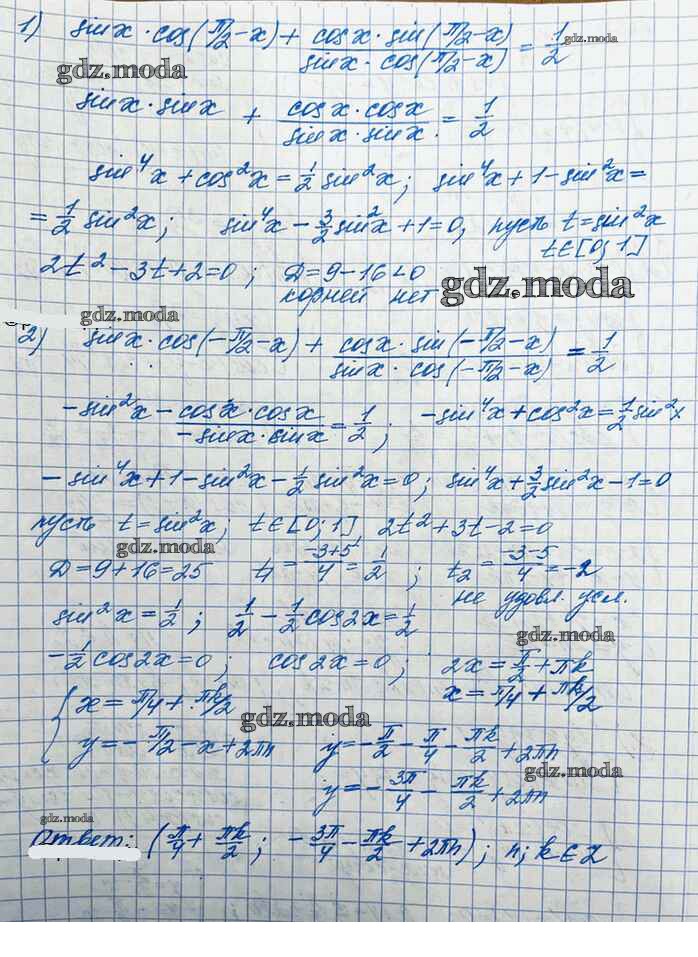 1) sin x · cos(π/2 − x) + (cos x · sin(π/2 − x))/(sin x · cos(π/2 − x)) = 1/2
gdz.moda
gdz.moda
sin x · sin x + (cos x · cos x)/(sin x · sin x) = 1/2
sin⁴x + cos²x = 1/2 sin²x; sin⁴x + 1 − sin²x =
= 1/2 sin²x; sin⁴x − 3/2 sin²x + 1 = 0, пусть t = sin²x
t∈[0; 1]
2t² − 3t + 2 = 0; D = 9 − 16 < 0
корней нет
gdz.moda
gdz.moda
2) sin x · cos(−π/2 − x) + (cos x · sin(−π/2 − x))/(sin x · cos(−π/2 − x)) = 1/2
−sin²x − (cos x · cos x)/(−sin x · sin x) = 1/2; −sin⁴x + cos²x = 1/2 sin²x
−sin⁴x + 1 − sin²x − 1/2 sin²x = 0; sin⁴x + 3/2 sin²x − 1 = 0
пусть t = sin²x; t∈[0; 1] 2t² + 3t − 2 = 0
gdz.moda
D = 9 + 16 = 25 t₁ = (−3+5)/4 = 1/2; t₂ = (−3−5)/4 = −2
не удовл. усл.
sin²x = 1/2; 1/2 − 1/2 cos2x = 1/2
gdz.moda
−1/2 cos2x = 0; cos2x = 0; 2x = π/2 + πk
x = π/4 + πk/2
{ x = π/4 + πk/2
gdz.moda
y = −π/2 − x + 2πn y = −π/2 − π/4 − πk/2 + 2πn
gdz.moda
y = −3π/4 − πk/2 + 2πn
gdz.moda
Ответ: (π/4 + πk/2; −3π/4 − πk/2 + 2πn); n; k ∈ Z